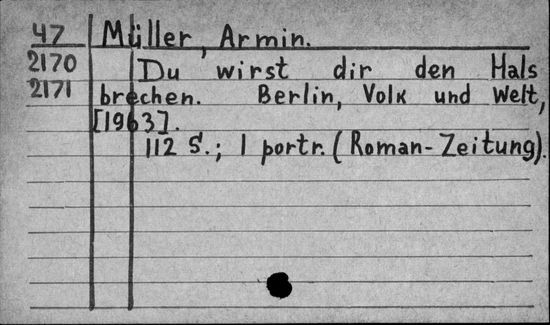 47 Müller, Armin.
2170 Du wirst dir den Hals
2171 brechen. Berlin, Volk und Welt,
[1963].
112 S.; 1 portr. (Roman-Zeitung).